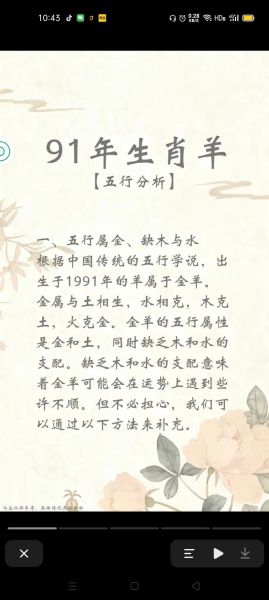 10:43
0.28
KB/S
HD
91年生肖羊
【五行分析】
一、五行属金、缺木与水
根据中国传统的五行学说，出
生于1991年的羊属于金羊。
金属与土相生，水相克，木克
土，火克金。金羊的五行属性
是金和土，同时缺乏木和水的
支配。缺乏木和水的支配意味
着金羊可能会在运势上遇到些
许不顺。但不必担心，我们可
以通过以下方法来补充。